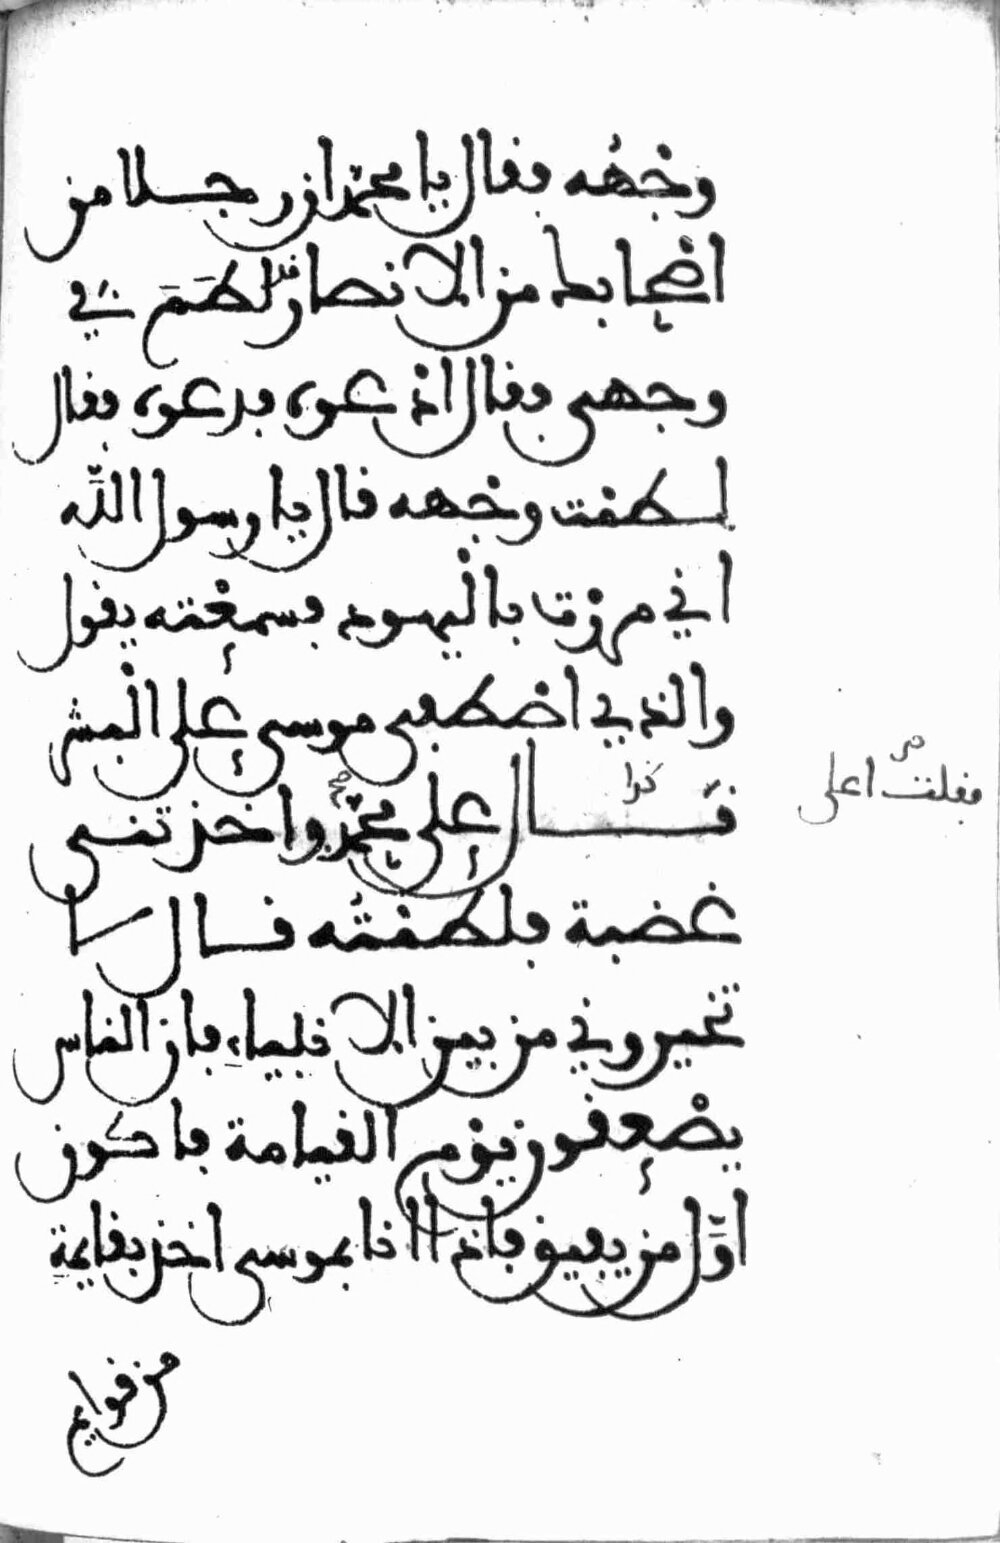 وجْهُه فقال يا محمّد ان رجلا من
اصْحابك من الانصار قد لطَمَ في
وجهي فقال ادْعوه فدعوه فقال
لم لطمت وجْهه قال يا رسول الله
اني مررْت بالْيهود فسمعْته يقول
والذي اصْطفى موسى على الْبشر
قَال كذا على محمّد واخذتني
فقلت اعلى
غضبة فلطمْتُه قال لا
تخيروني من بين الانبياء فان الناس
يصْعقون يوْم القيامة فاكون
اوّل من يفيق فاذا انا بموسى اخذ بقايمة
من قوايم